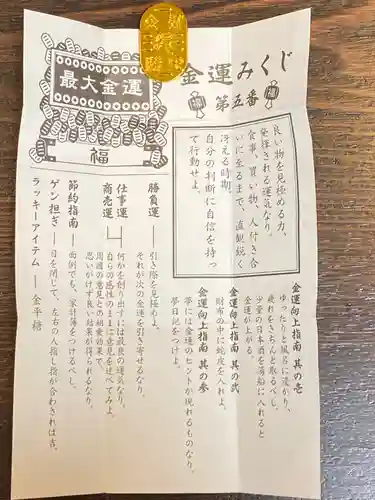 金運みくじ
第五番
最大金運
福
良い物を見極める力、
発揮される運気なり。
食事、買い物、人付き合
いに至るまで、直観鋭く
冴える時期。
自分の判断に自信を持っ
て行動せよ。
金運向上指南 其の壱
ゆったりと風呂に浸かり、
疲れをきちんと取るべし。
少量の日本酒を湯船に入れると
金運が上がる。
金運向上指南 其の弐
財布の中に蛇皮を入れよ。
金運向上指南 其の参
夢には金運のヒントが現れるものなり。
夢日記をつけよ。
勝負運
引き際を見極めよ。
それが次の金運を引き寄せるなり。
仕事運
商売運
何かを創り出すには最良の運気なり。
自らの感性のままに意見を述べてみよ。
周囲の意見との相乗効果で、
思いがけず良い結果が得られるなり。
節約指南―面倒でも、家計簿をつけるべし。
ゲン担ぎ―目を閉じて、左右の人指し指が合わされば吉。
ラッキーアイテム―金平糖